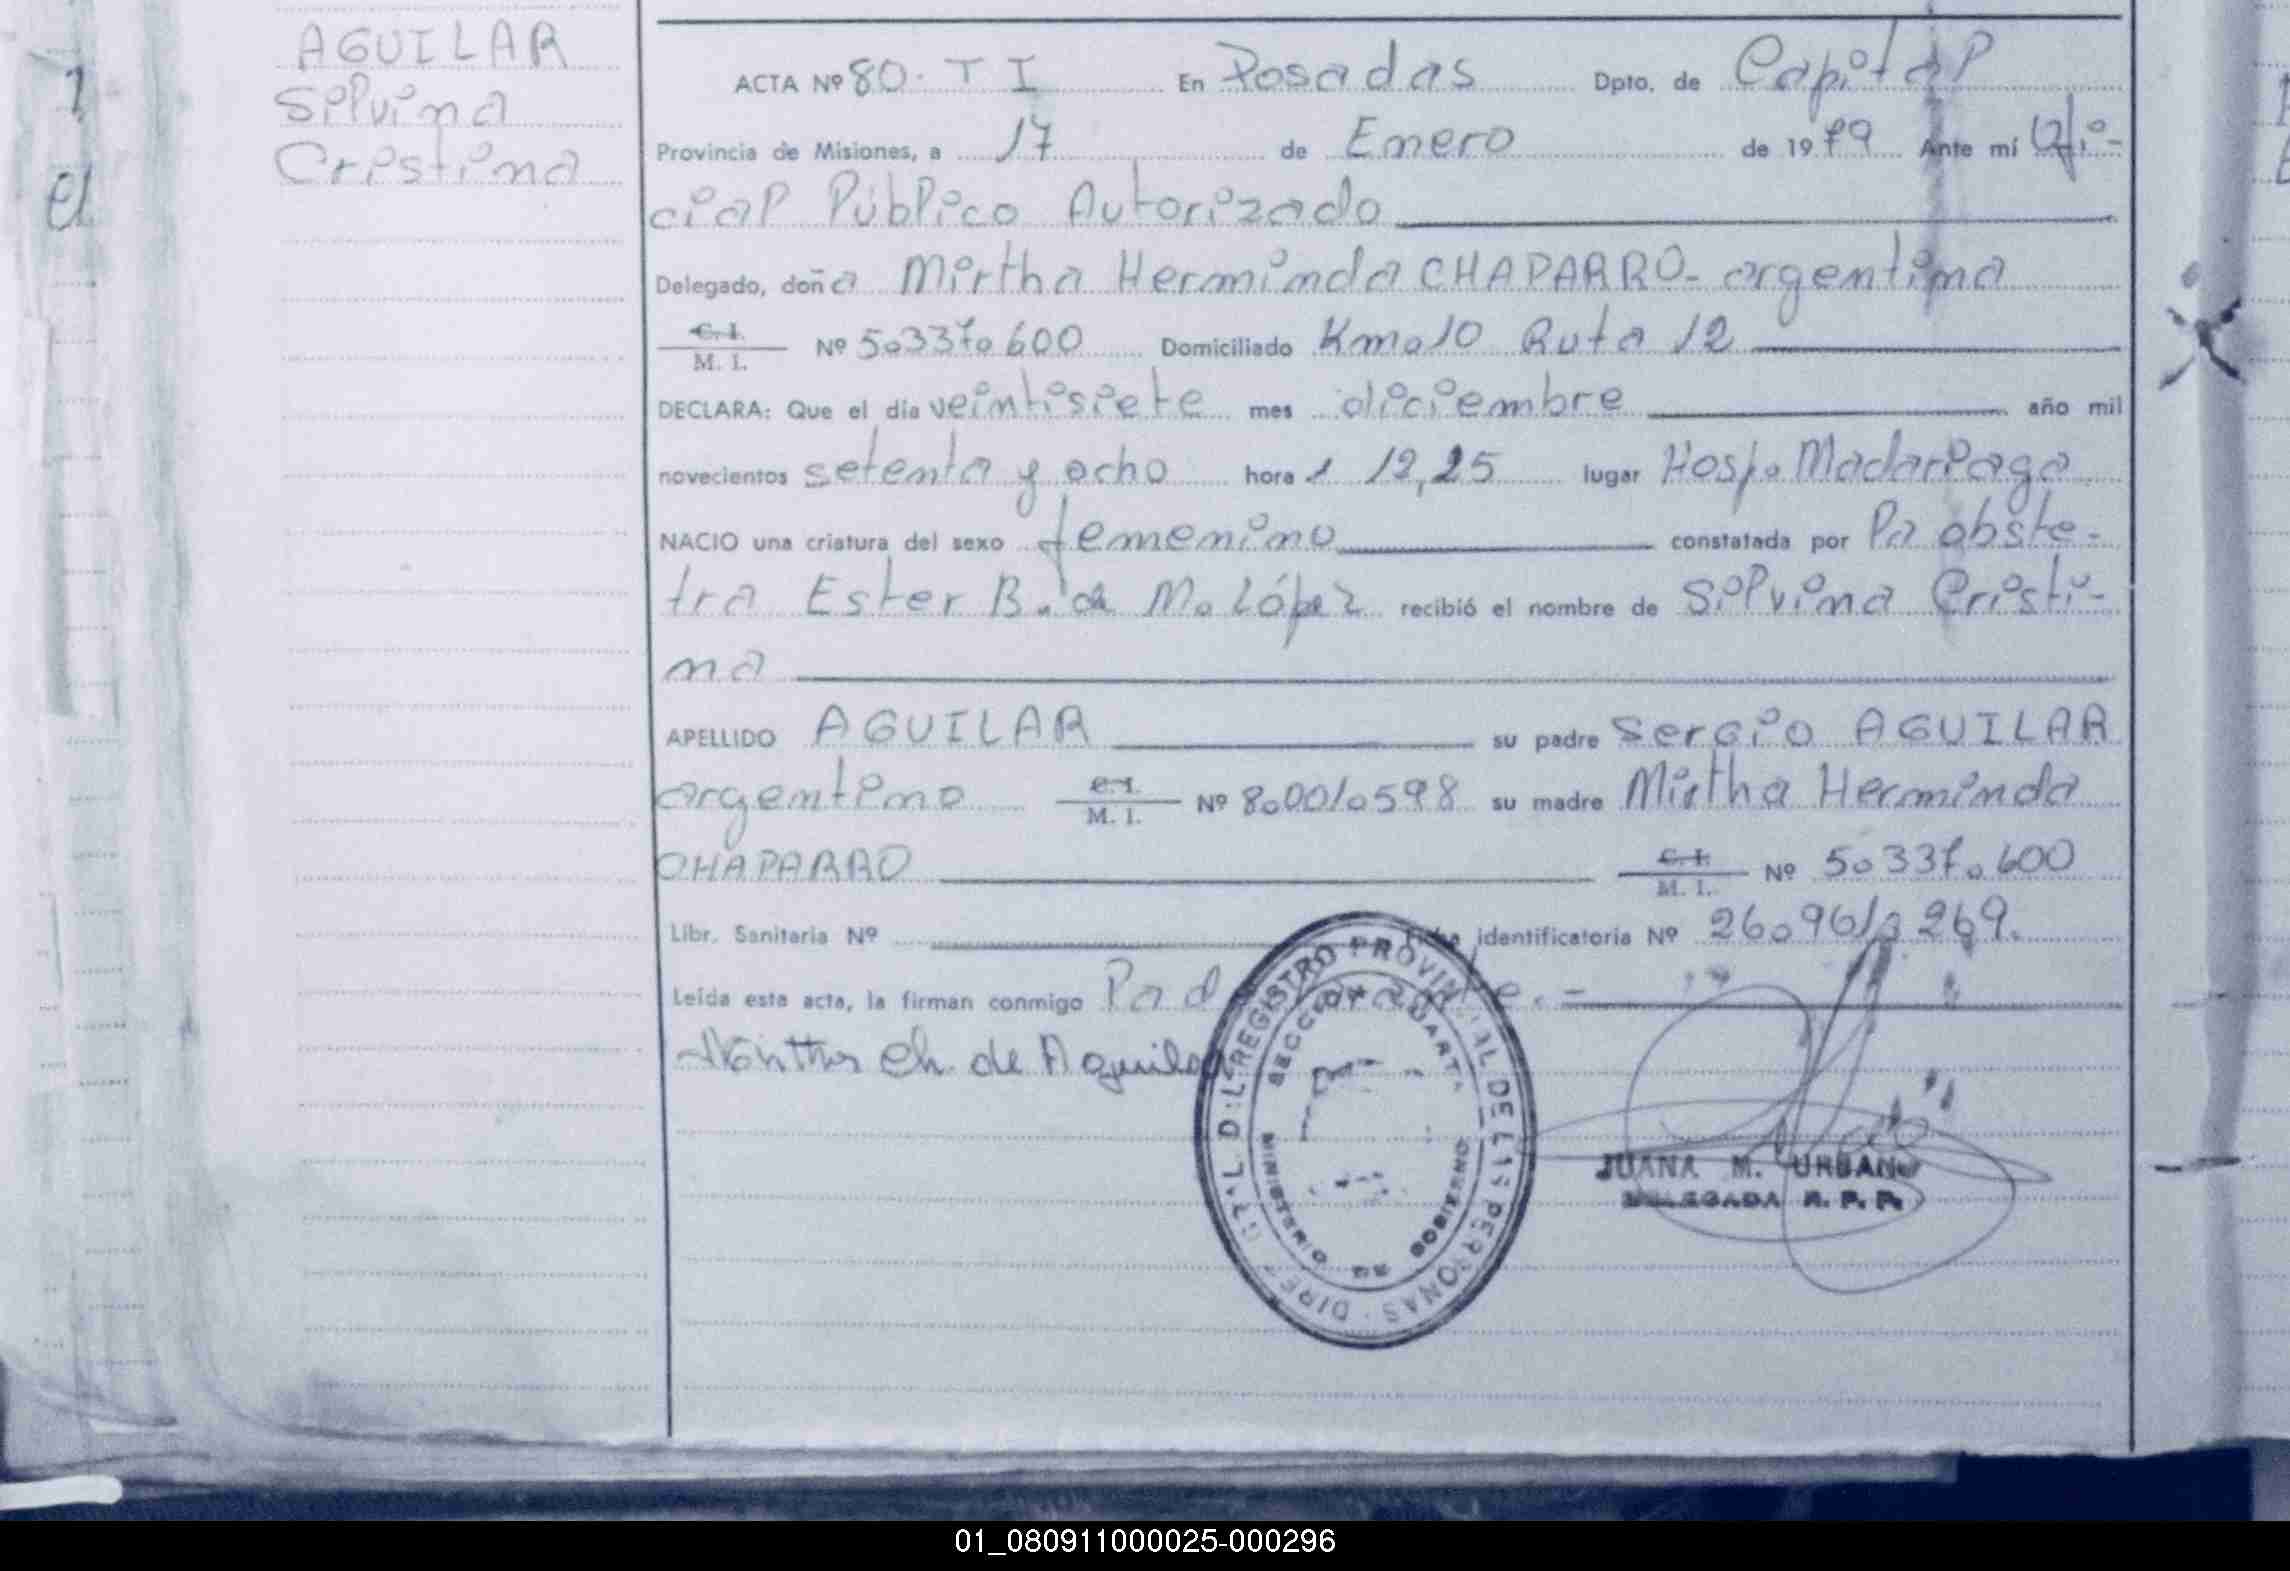 AGUILAR
Silvina
Cristina
ACTA Nº 80. T I En Posadas Dpto. de Capital
Provincia de Misiones, a 17 de Enero de 1979 Ante mí Ofi-
cial Público Autorizado
Delegado, doña Mirtha Herminda CHAPARRO - argentina
C. I.
M. I. Nº 5.337.600 Domiciliado Km.10 Ruta 12
DECLARA: Que el día veintisiete mes diciembre año mil
novecientos setenta y ocho hora 12,25 lugar Hosp. Madariaga
NACIO una criatura del sexo femenino constatada por la obste-
tra Ester B. de M. López recibió el nombre de Silvina Cristi-
na
APELLIDO AGUILAR su padre Sergio AGUILAR
argentino C. I. M. I. Nº 8.001.598 su madre Mirtha Herminda
CHAPARRO C. I. M. I. Nº 5.337.600
Libr. Sanitaria Nº identificatoria Nº 26.961.269.
Leída esta acta, la firman conmigo la
Ch. de Aguilar
REGISTRO PROVINCIAL DE LAS PERSONAS
SECCION CUARTA
MINISTERIO DE GOBIERNO
JUANA M. URBANO
DELEGADA R. P. P.
01_080911000025-000296